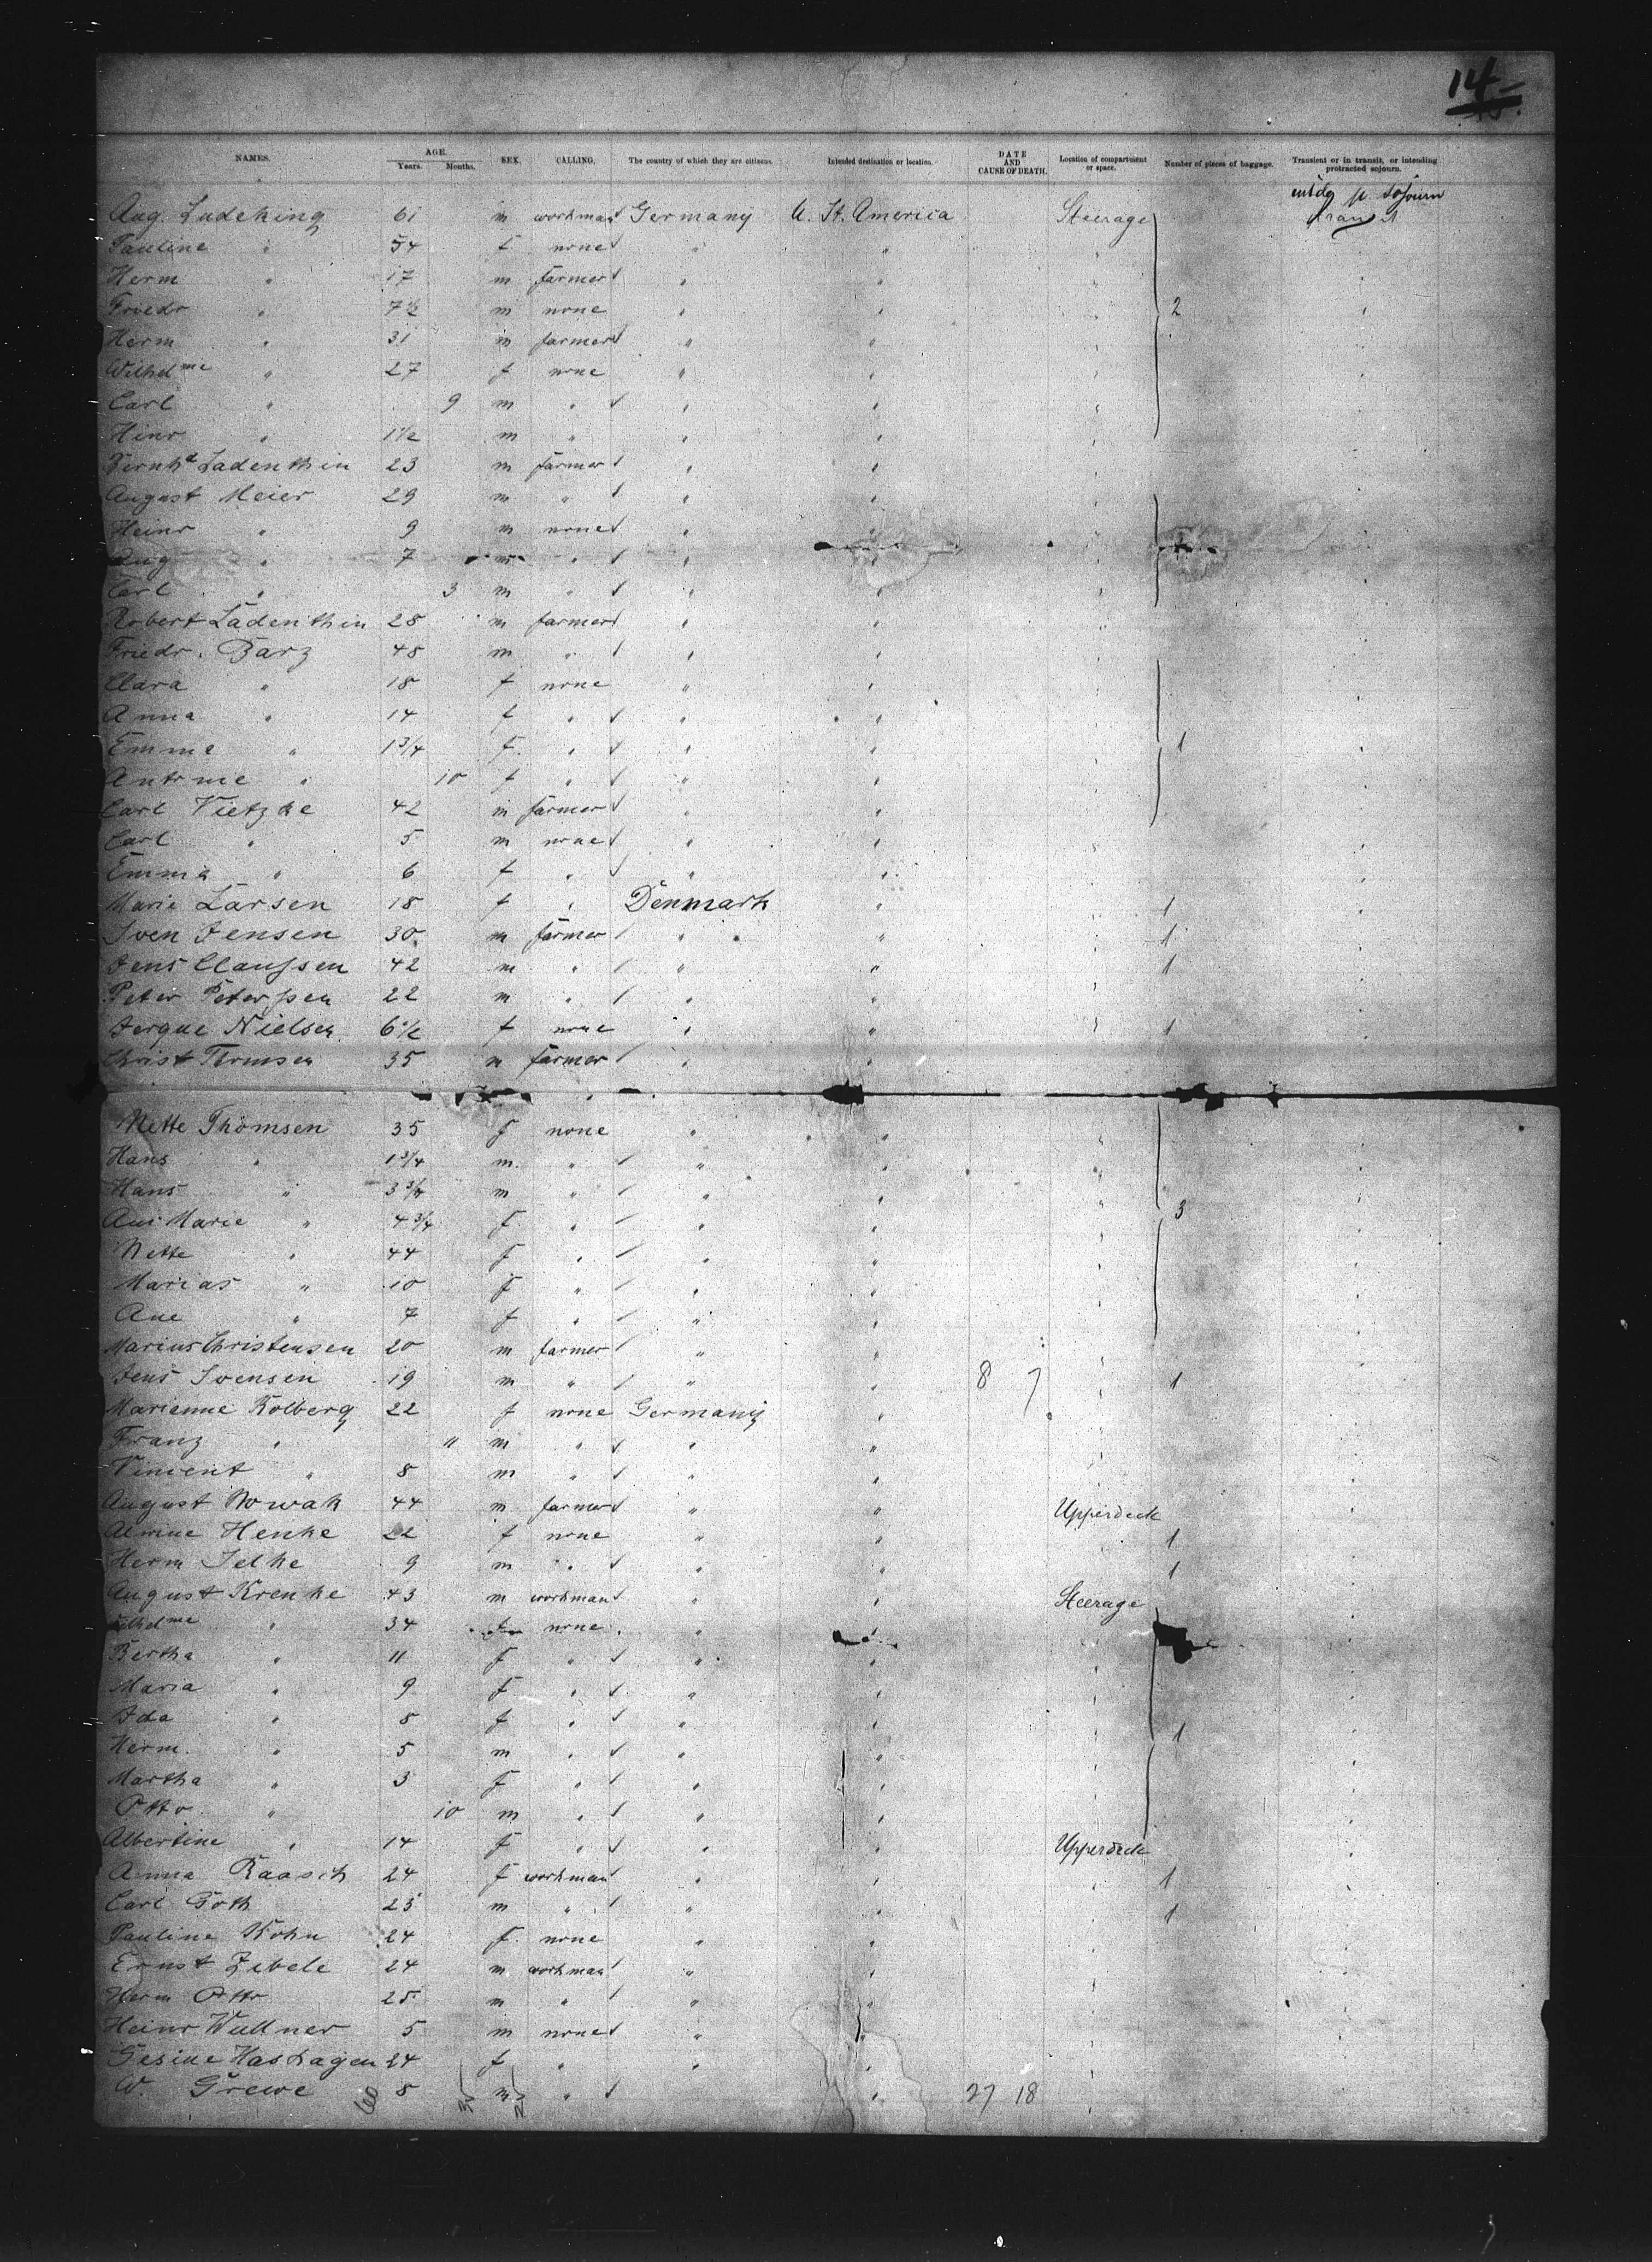 14
NAMES. AGE. Years. Months. SEX. CALLING. The country of which they are citizens. Intended destination or location. DATE AND CAUSE OF DEATH. Location of compartment or space. Number of pieces of baggage. Transient or in transit, or intending protracted sojourn.
sojourn
Aug. Ludeking 61 m workman Germany U. St. America Steerage
Pauline " 54 f none " "
Herm " 17 m farmer " "
Friedr " 7½ m none " " 2
Herm " 31 m farmer " "
Wilhelme " 27 f none " "
Carl " 9 m " " "
Heinr " 1½ m " " "
Bernhd Ladenthin 23 m farmer " "
August Meier 29 m " " "
Heinr " 9 m none " "
Aug " 7 m " " "
Carl " 3 m " " "
Robert Ladenthin 28 m farmer " "
Friedr. Barz 48 m " " "
Clara " 18 f none " "
Anna " 14 f " " "
Emma " 1 3/4 f " " " 1
Antonie " 10 f " " "
Carl Vietzke 42 m farmer " "
Carl " 5 m none " "
Emma " 6 f " " "
Marie Larsen 18 f " Denmark " 1
Sven Jensen 30 m farmer " " 1
Jens Claussen 42 m " " " 1
Peter Peterssen 22 m " " "
Nielsen 6½ f none " " 1
Christ Thomsen 35 m farmer "
Mette Thomsen 35 f none " "
Hans " 1 3/4 m " " "
Hans " 3 3/4 m " " "
Ane Marie " 4 3/4 f " " " 3
Mette " 44 f " " "
Marias " 10 f " " "
Ane " 7 f " " "
Marius Christensen 20 m farmer " "
Jens Svensen 19 m " " " 8 7 1
Marianne Kolberg 22 f none Germany "
Franz " 11 m " " "
Vincent " 8 m " " "
August Nowak 44 m farmer " " Upperdeck
Alwine Henke 22 f none " " 1
Herm Selke 9 m " " " 1
August Krenke 43 m workman " " Steerage
Wilhelme " 34 f none " "
Bertha " 11 f " " "
Maria " 9 f " " "
Ida " 8 f " " " 1
Herm. " 5 m " " "
Martha " 3 f " " "
Otto " 10 m " " "
Albertine " 14 f " " " Upperdeck
Anna Raasch 24 f workman " " 1
Carl Goth 23 m " " " 1
Pauline Kohn 24 f none " "
Ernst Zibele 24 m workman " "
Herm Otto 25 m " " "
Heinr Wullner 5 m none " "
Gesine Hashagen 24 f " " "
W. Grewe 8 m " " 27 18